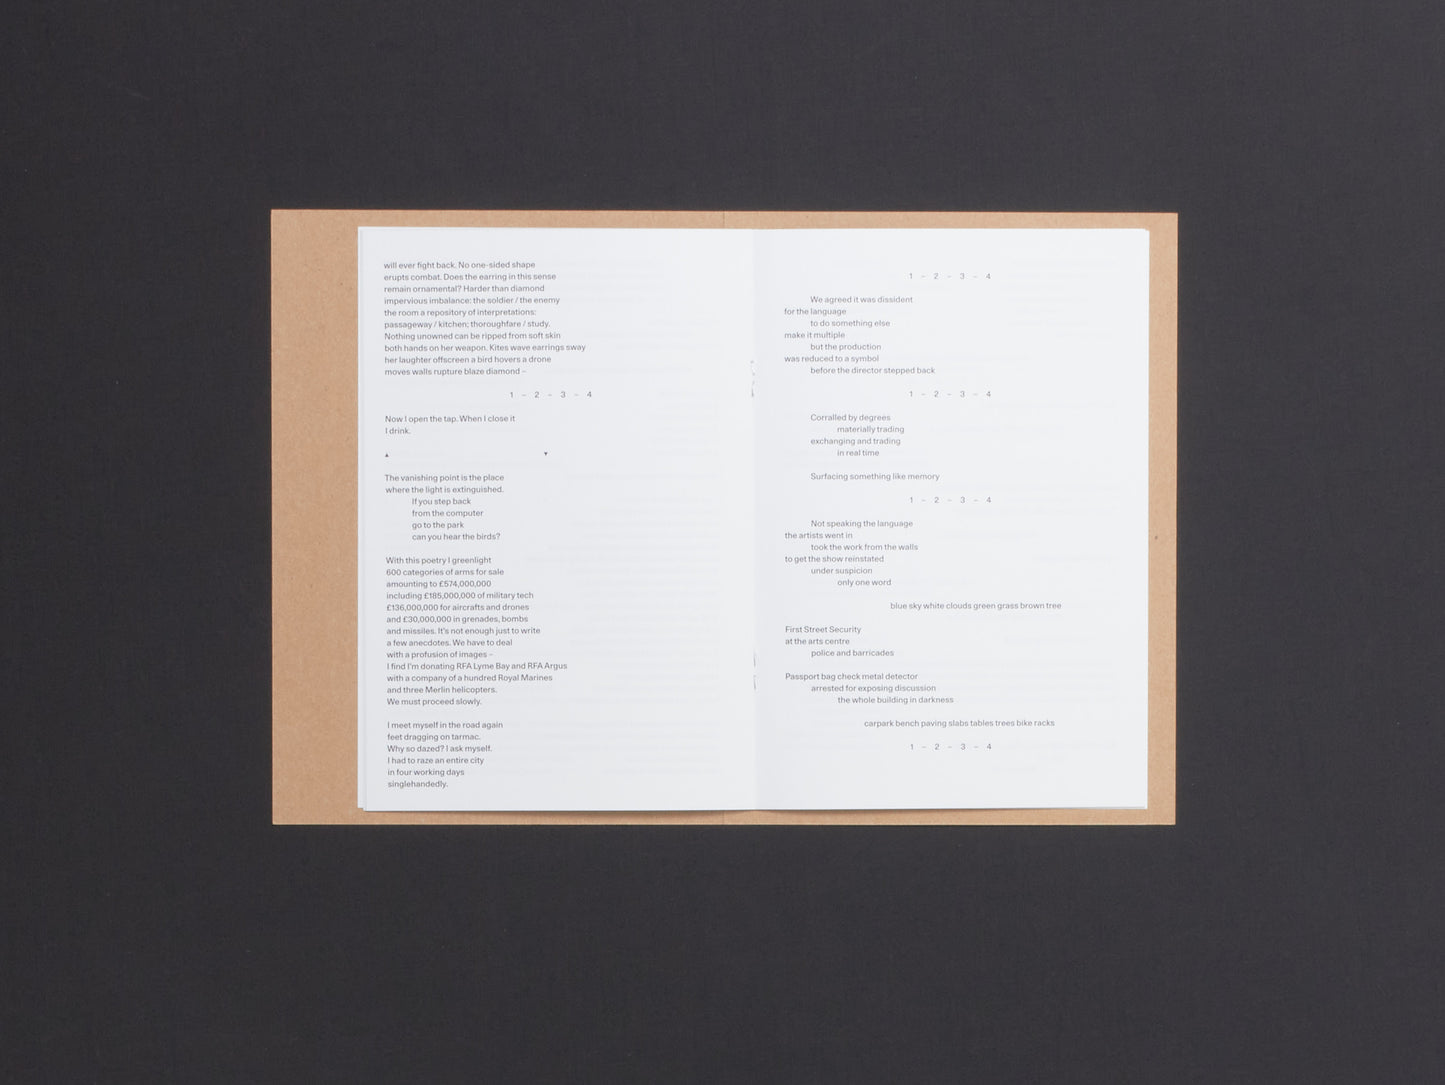 will ever fight back. No one-sided shape
erupts combat. Does the earring in this sense
remain ornamental? Harder than diamond
impervious imbalance: the soldier / the enemy
the room a repository of interpretations:
passageway / kitchen; thoroughfare / study.
Nothing unowned can be ripped from soft skin
both hands on her weapon. Kites wave earrings sway
her laughter offscreen a bird hovers a drone
moves walls rupture blaze diamond –
1 – 2 – 3 – 4
Now I open the tap. When I close it
I drink.
▲ ▼
The vanishing point is the place
where the light is extinguished.
If you step back
from the computer
go to the park
can you hear the birds?
With this poetry I greenlight
600 categories of arms for sale
amounting to £574,000,000
including £185,000,000 of military tech
£136,000,000 for aircrafts and drones
and £30,000,000 in grenades, bombs
and missiles. It's not enough just to write
a few anecdotes. We have to deal
with a profusion of images –
I find I'm donating RFA Lyme Bay and RFA Argus
with a company of a hundred Royal Marines
and three Merlin helicopters.
We must proceed slowly.
I meet myself in the road again
feet dragging on tarmac.
Why so dazed? I ask myself.
I had to raze an entire city
in four working days
singlehandedly.
1 – 2 – 3 – 4
We agreed it was dissident
for the language
to do something else
make it multiple
but the production
was reduced to a symbol
before the director stepped back
1 – 2 – 3 – 4
Corralled by degrees
materially trading
exchanging and trading
in real time
Surfacing something like memory
1 – 2 – 3 – 4
Not speaking the language
the artists went in
took the work from the walls
to get the show reinstated
under suspicion
only one word
blue sky white clouds green grass brown tree
First Street Security
at the arts centre
police and barricades
Passport bag check metal detector
arrested for exposing discussion
the whole building in darkness
carpark bench paving slabs tables trees bike racks
1 – 2 – 3 – 4